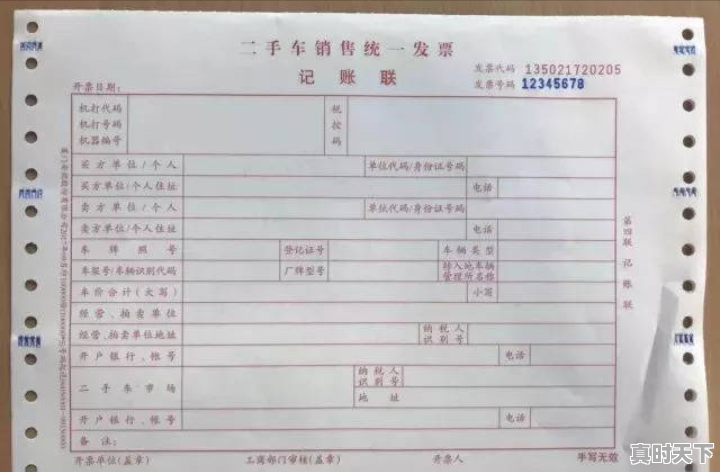 二手车销售统一发票
记账联
发票代码 135021720205
发票号码 12345678
开票日期：
机打代码
机打号码
机器编号
税控码
买方单位/个人 单位代码/身份证号码
买方单位/个人住址 电话
卖方单位/个人 单位代码/身份证号码
卖方单位/个人住址 电话
车牌照号 登记证号 车辆类型
车架号/车辆识别代码 厂牌型号 转入地车辆管理所名称
车价合计(大写) 小写
经营、拍卖单位
经营、拍卖单位地址 纳税人识别号
开户银行、账号 电话
二手车市场 纳税人识别号
地址
开户银行、账号 电话
备注：
开票单位(盖章) 工商部门审核(盖章) 开票人 手写无效
第四联 记账联
真时天下